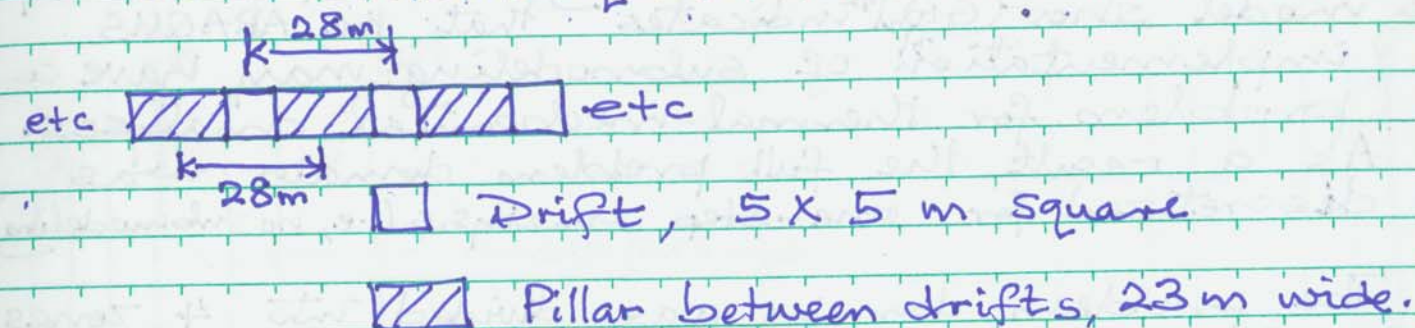 28m
etc etc
28m
Drift, 5 X 5 m square
Pillar between drifts, 23 m wide.